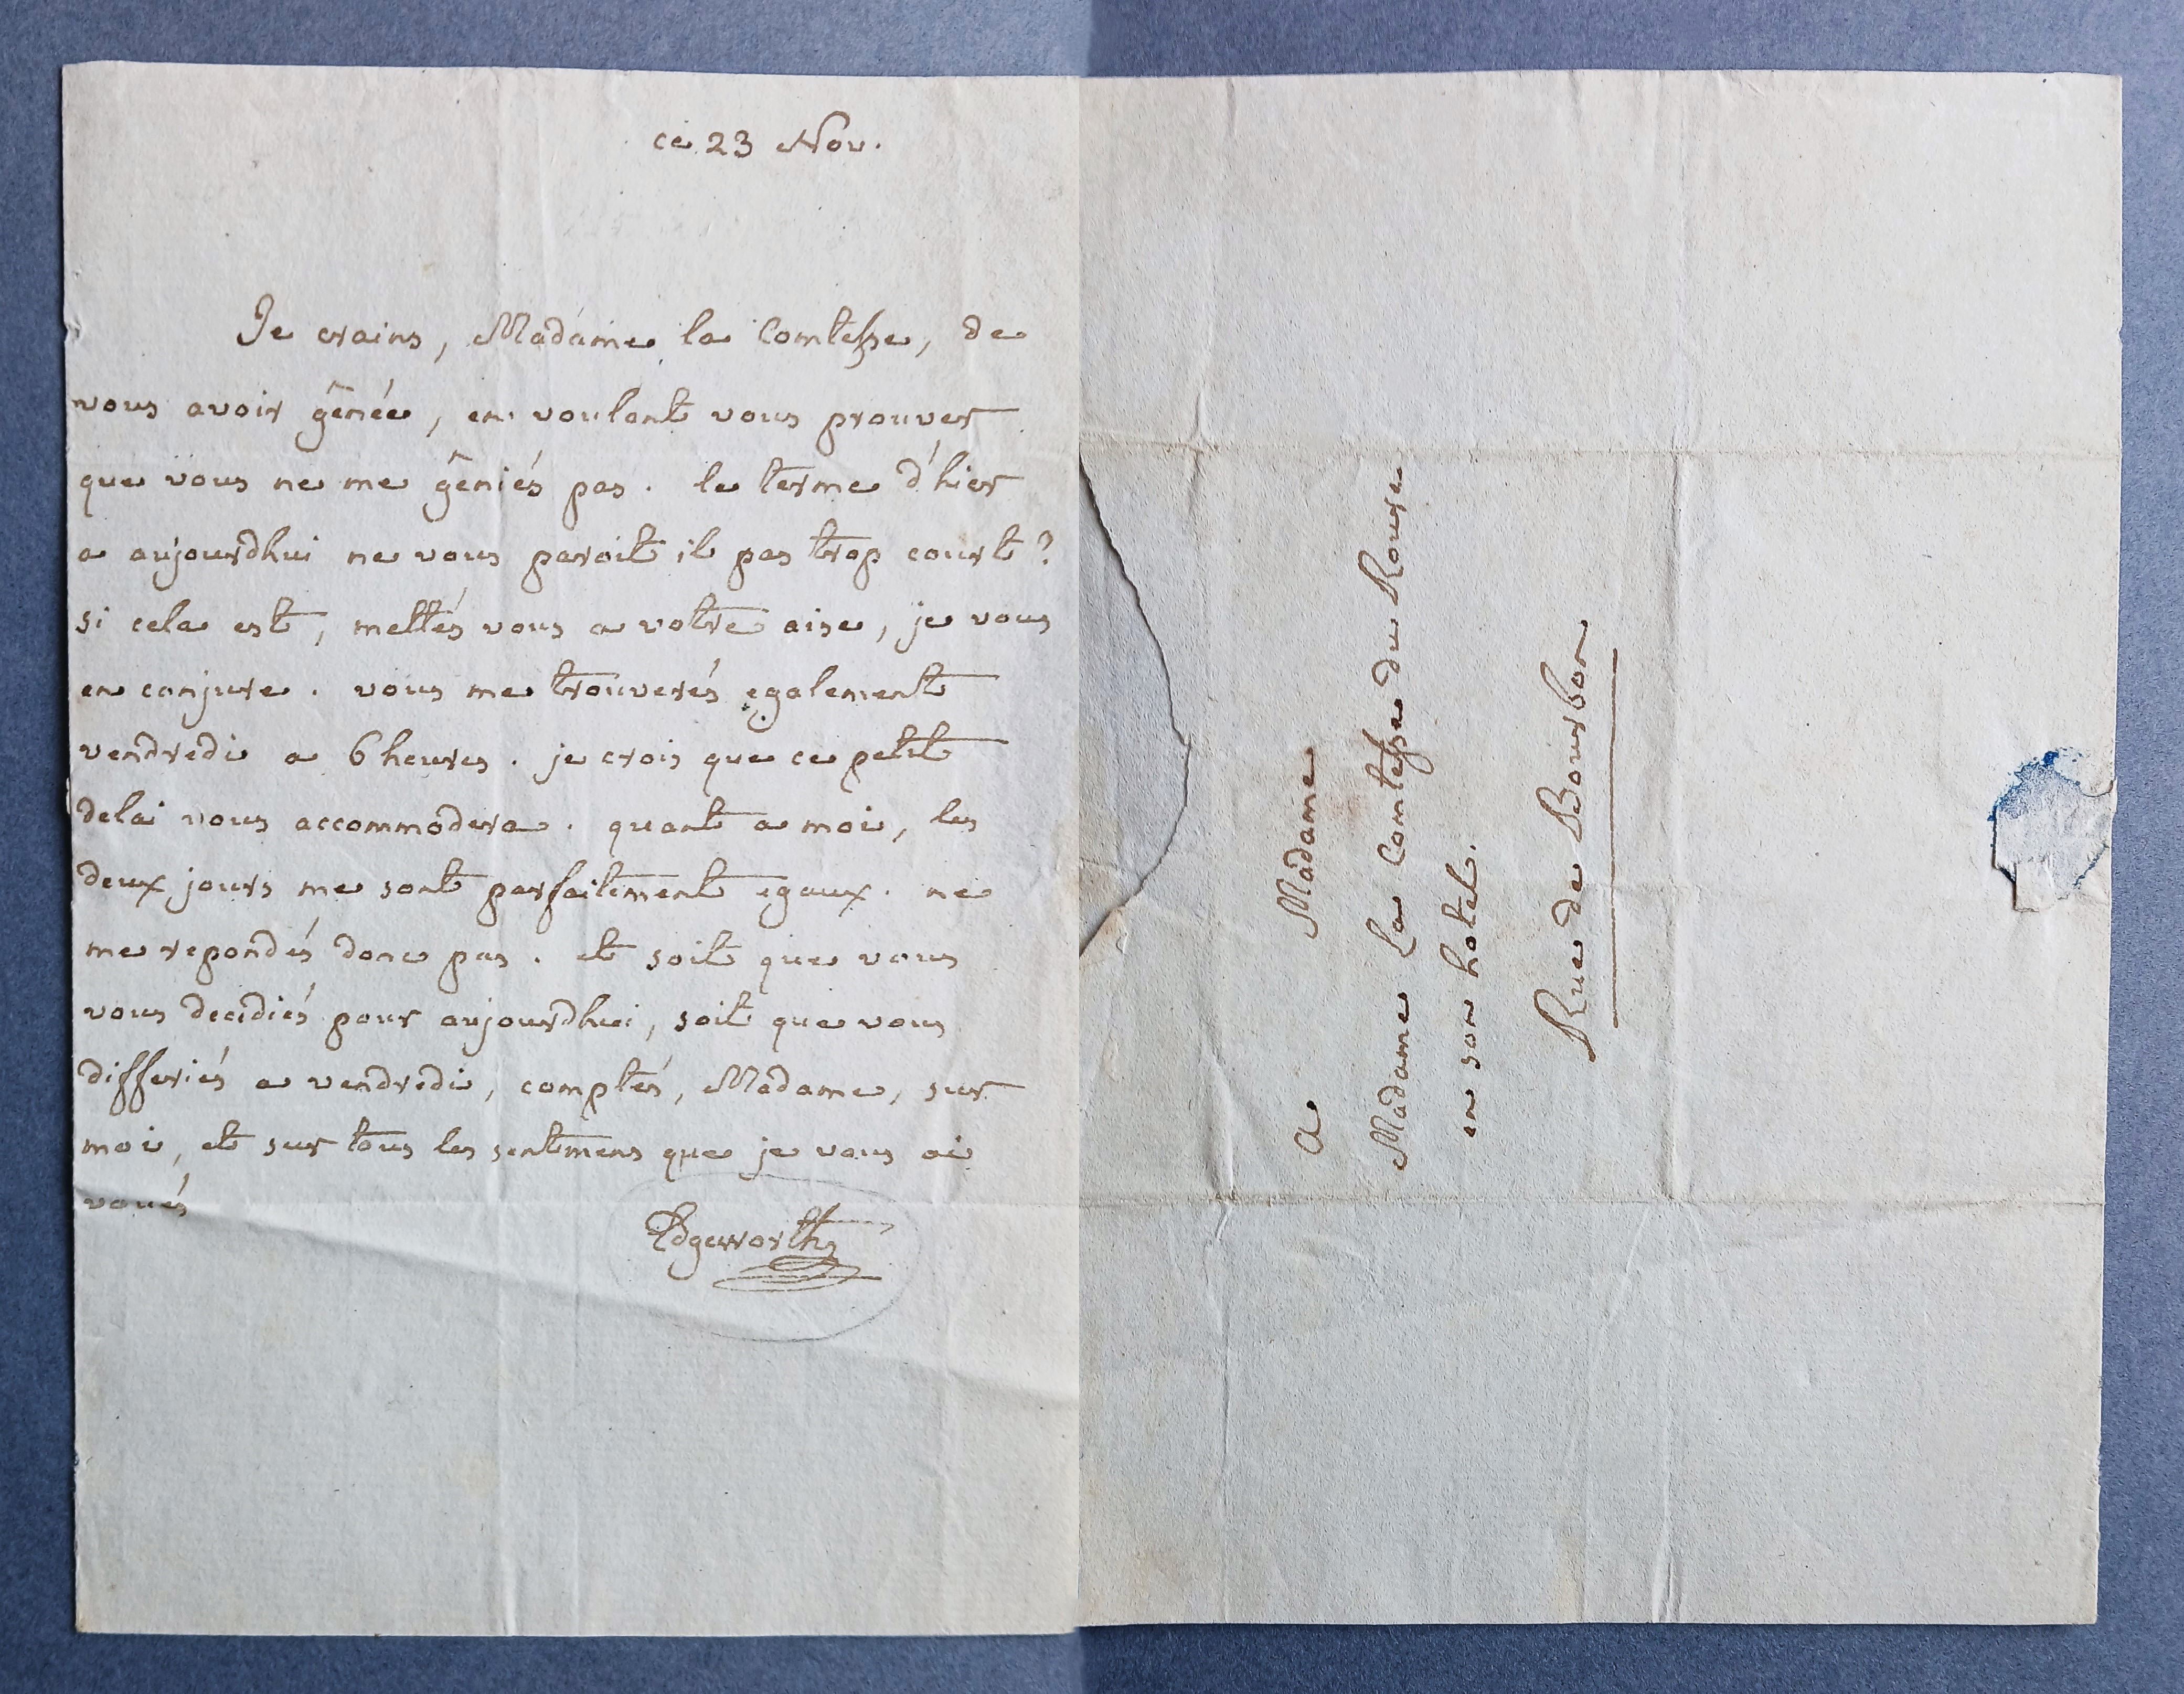 ce 23 Nov.
Je crains, Madame la Comtesse, de
vous avoir gênée, en voulant vous prouver
que vous ne me gêniés pas. le terme d'hier
a aujourdhui ne vous paroit il pas trop court ?
si cela est, mettés vous a votre aise, je vous
en conjure. vous me trouverés egalement
vendredi a 6 heures. je crois que ce petit
delai vous accommodera. quant a moi, les
deux jours me sont parfaitement egaux. ne
me repondés donc pas. et soit que vous
vous decidiés pour aujourdhui, soit que vous
differiés a vendredi, comptés, Madame, sur
moi, et sur tous les sentimens que je vous ai
voués
Edgeworth
a Madame
Madame La Comtesse du Roure
en son hotel.
Rue de Bourbon